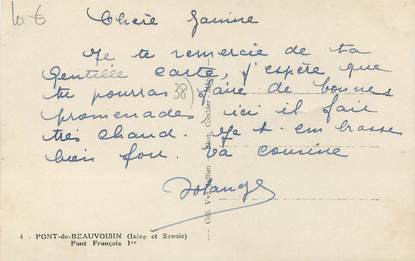 10 €
Chère Janine
Je te remercie de ta
gentille carte, j'espère que
tu pourras faire de bonnes
38)
promenades ici il fait
très chaud. Je t'embrasse
bien fort. Ta cousine
Solange
4 - PONT-de-BEAUVOISIN (Isère et Savoie)
Pont François Ier